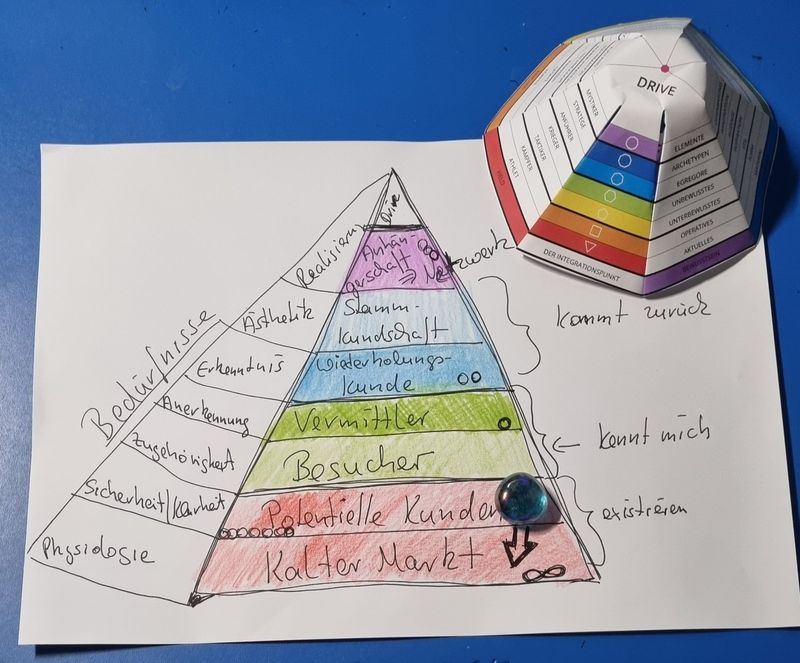 DRIVE
MYSTIKER
STRATEGE
ANFÜHRER
KRIEGER
TAKTIKER
KÄMPFER
ATHLET
HELD
ELEMENTE
ARCHETYPEN
EGREGORE
UNBEWUSSTES
UNTERBEWUSSTES
OPERATIVES
AKTUELLES
BEWUSSTSEIN
DER INTEGRATIONSPUNKT
Drive
Bedürfnisse
Realisieren
Ästhetik
Erkenntnis
Anerkennung
Zugehörigkeit
Sicherheit/Klarheit
Physiologie
Anhän-
gerschaft ⇒ Netzwerk
Stamm-
kundschaft
Wiederholungs-
kunde
Vermittler
Besucher
Potentielle Kunden
Kalter Markt
∞
kommt zurück
← kennt mich
existieren